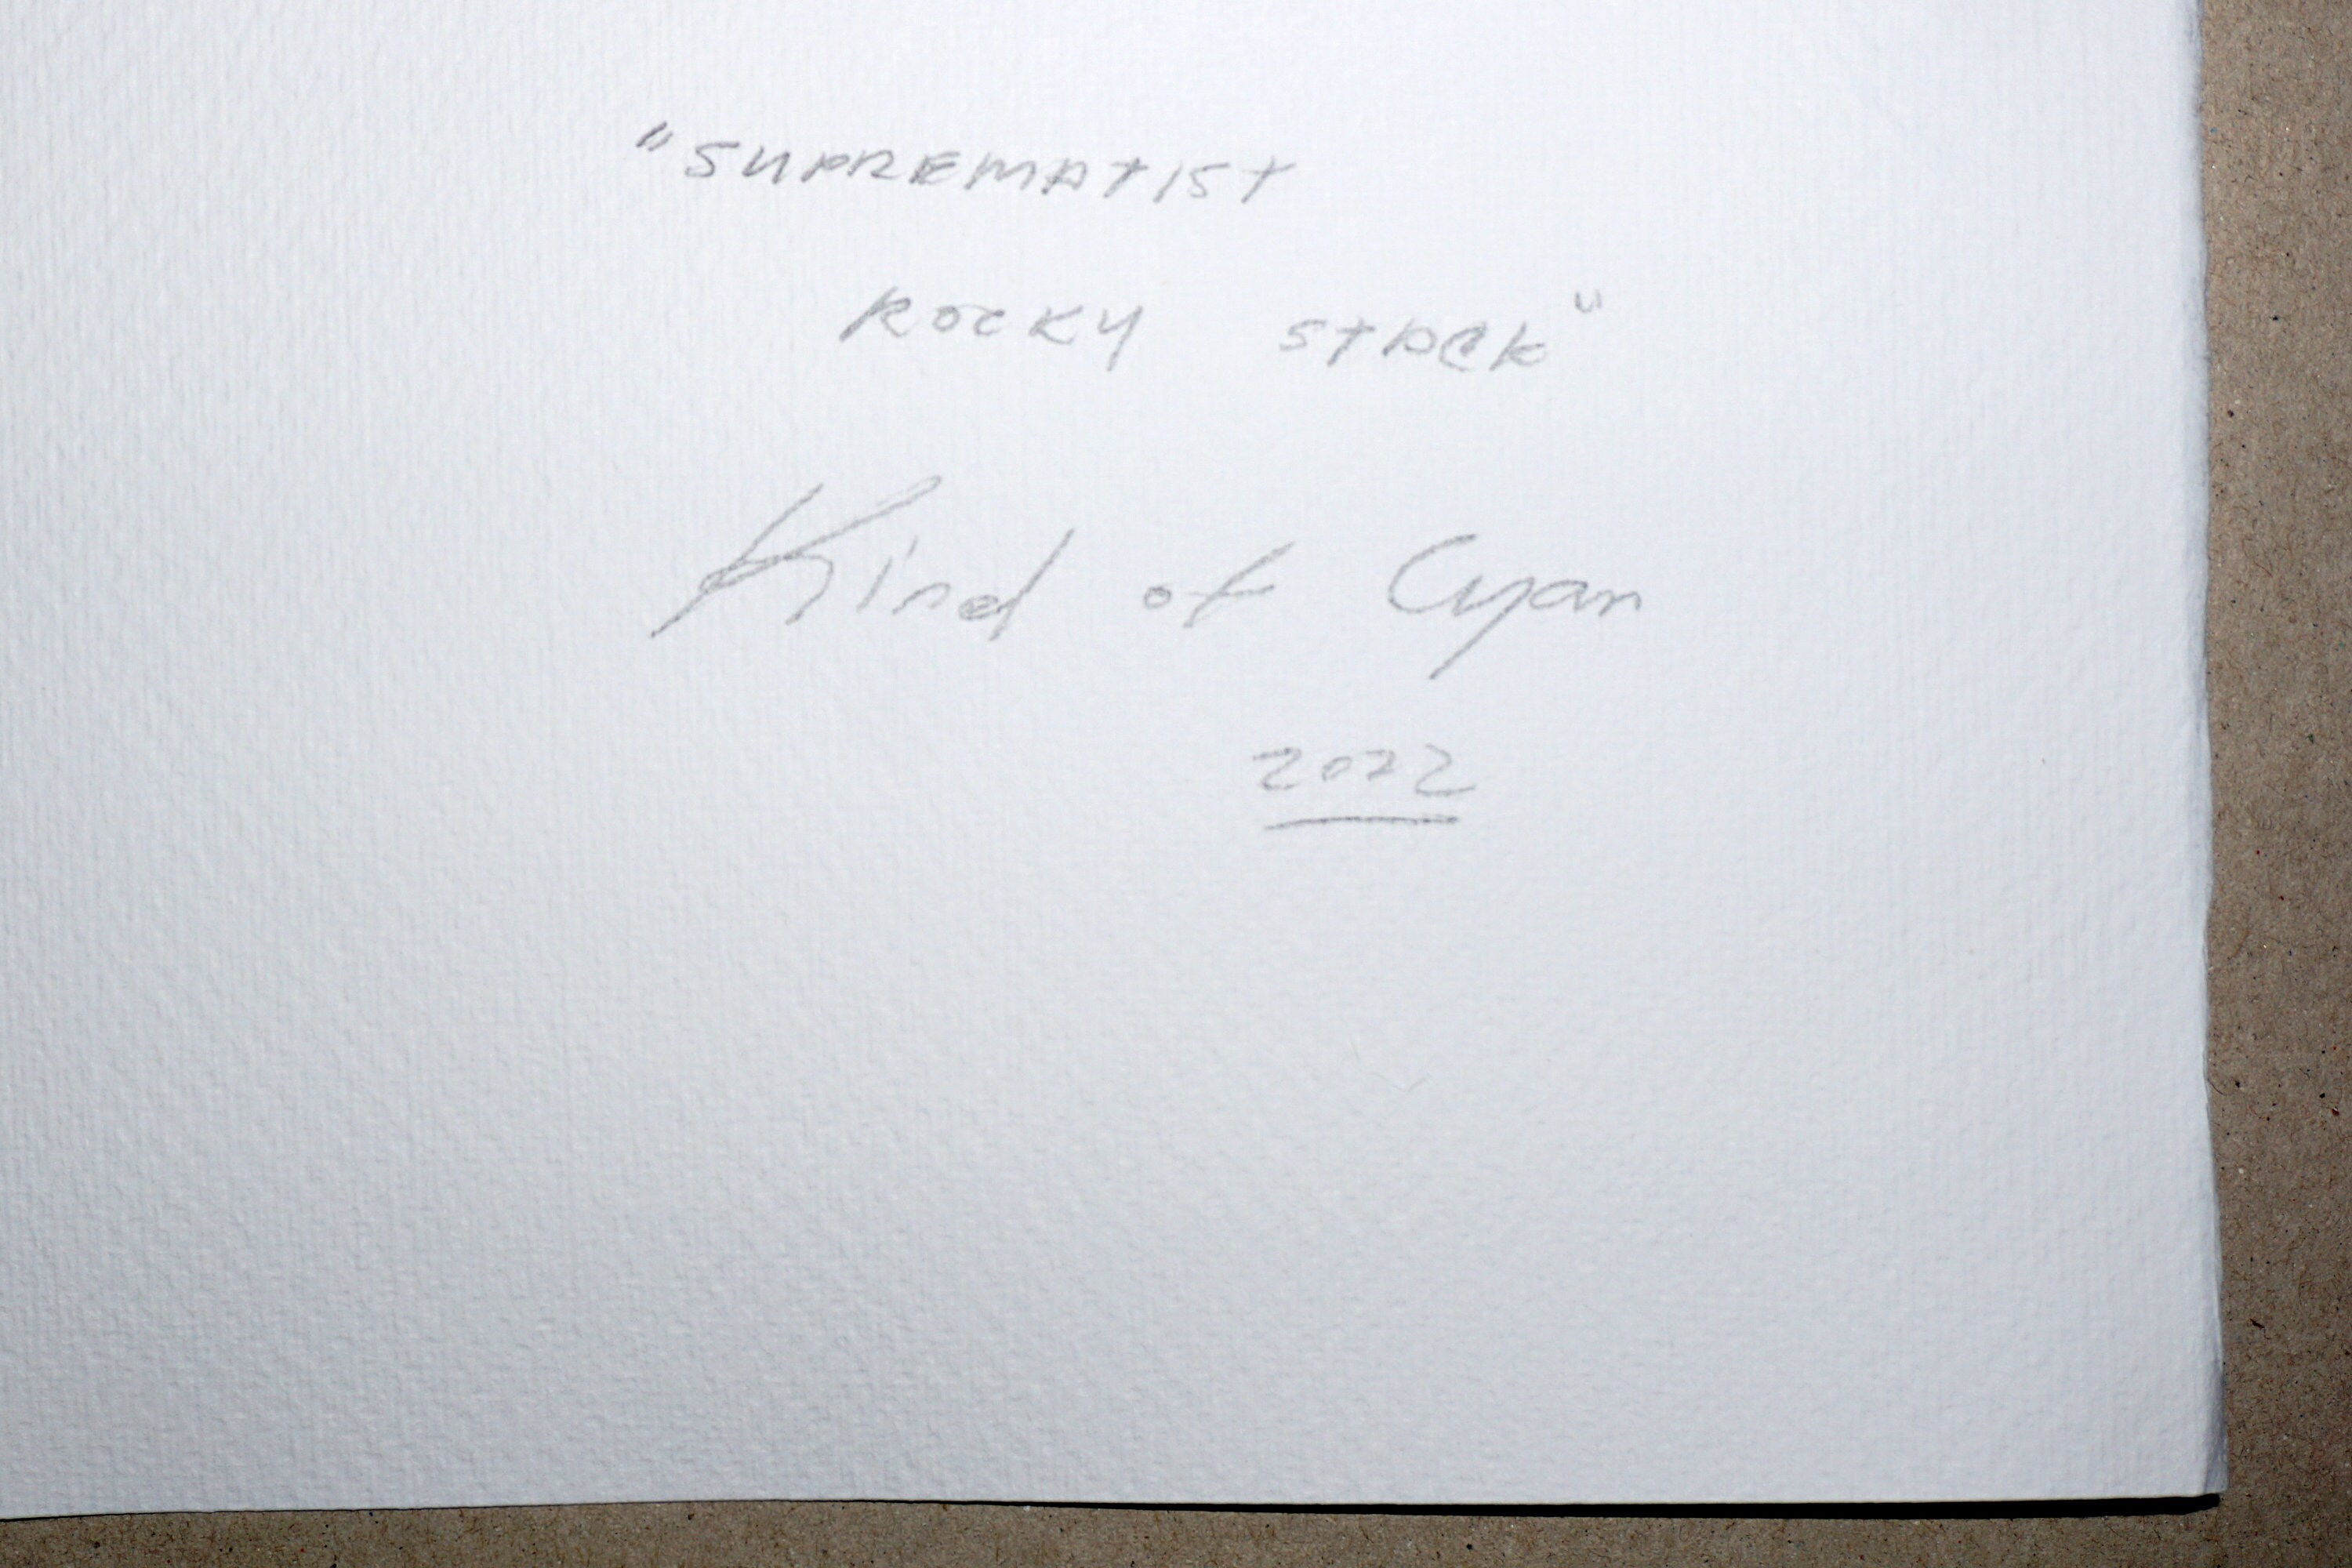 "SUPREMATIST
ROCKY STACK"
Kind of Cyan
2022